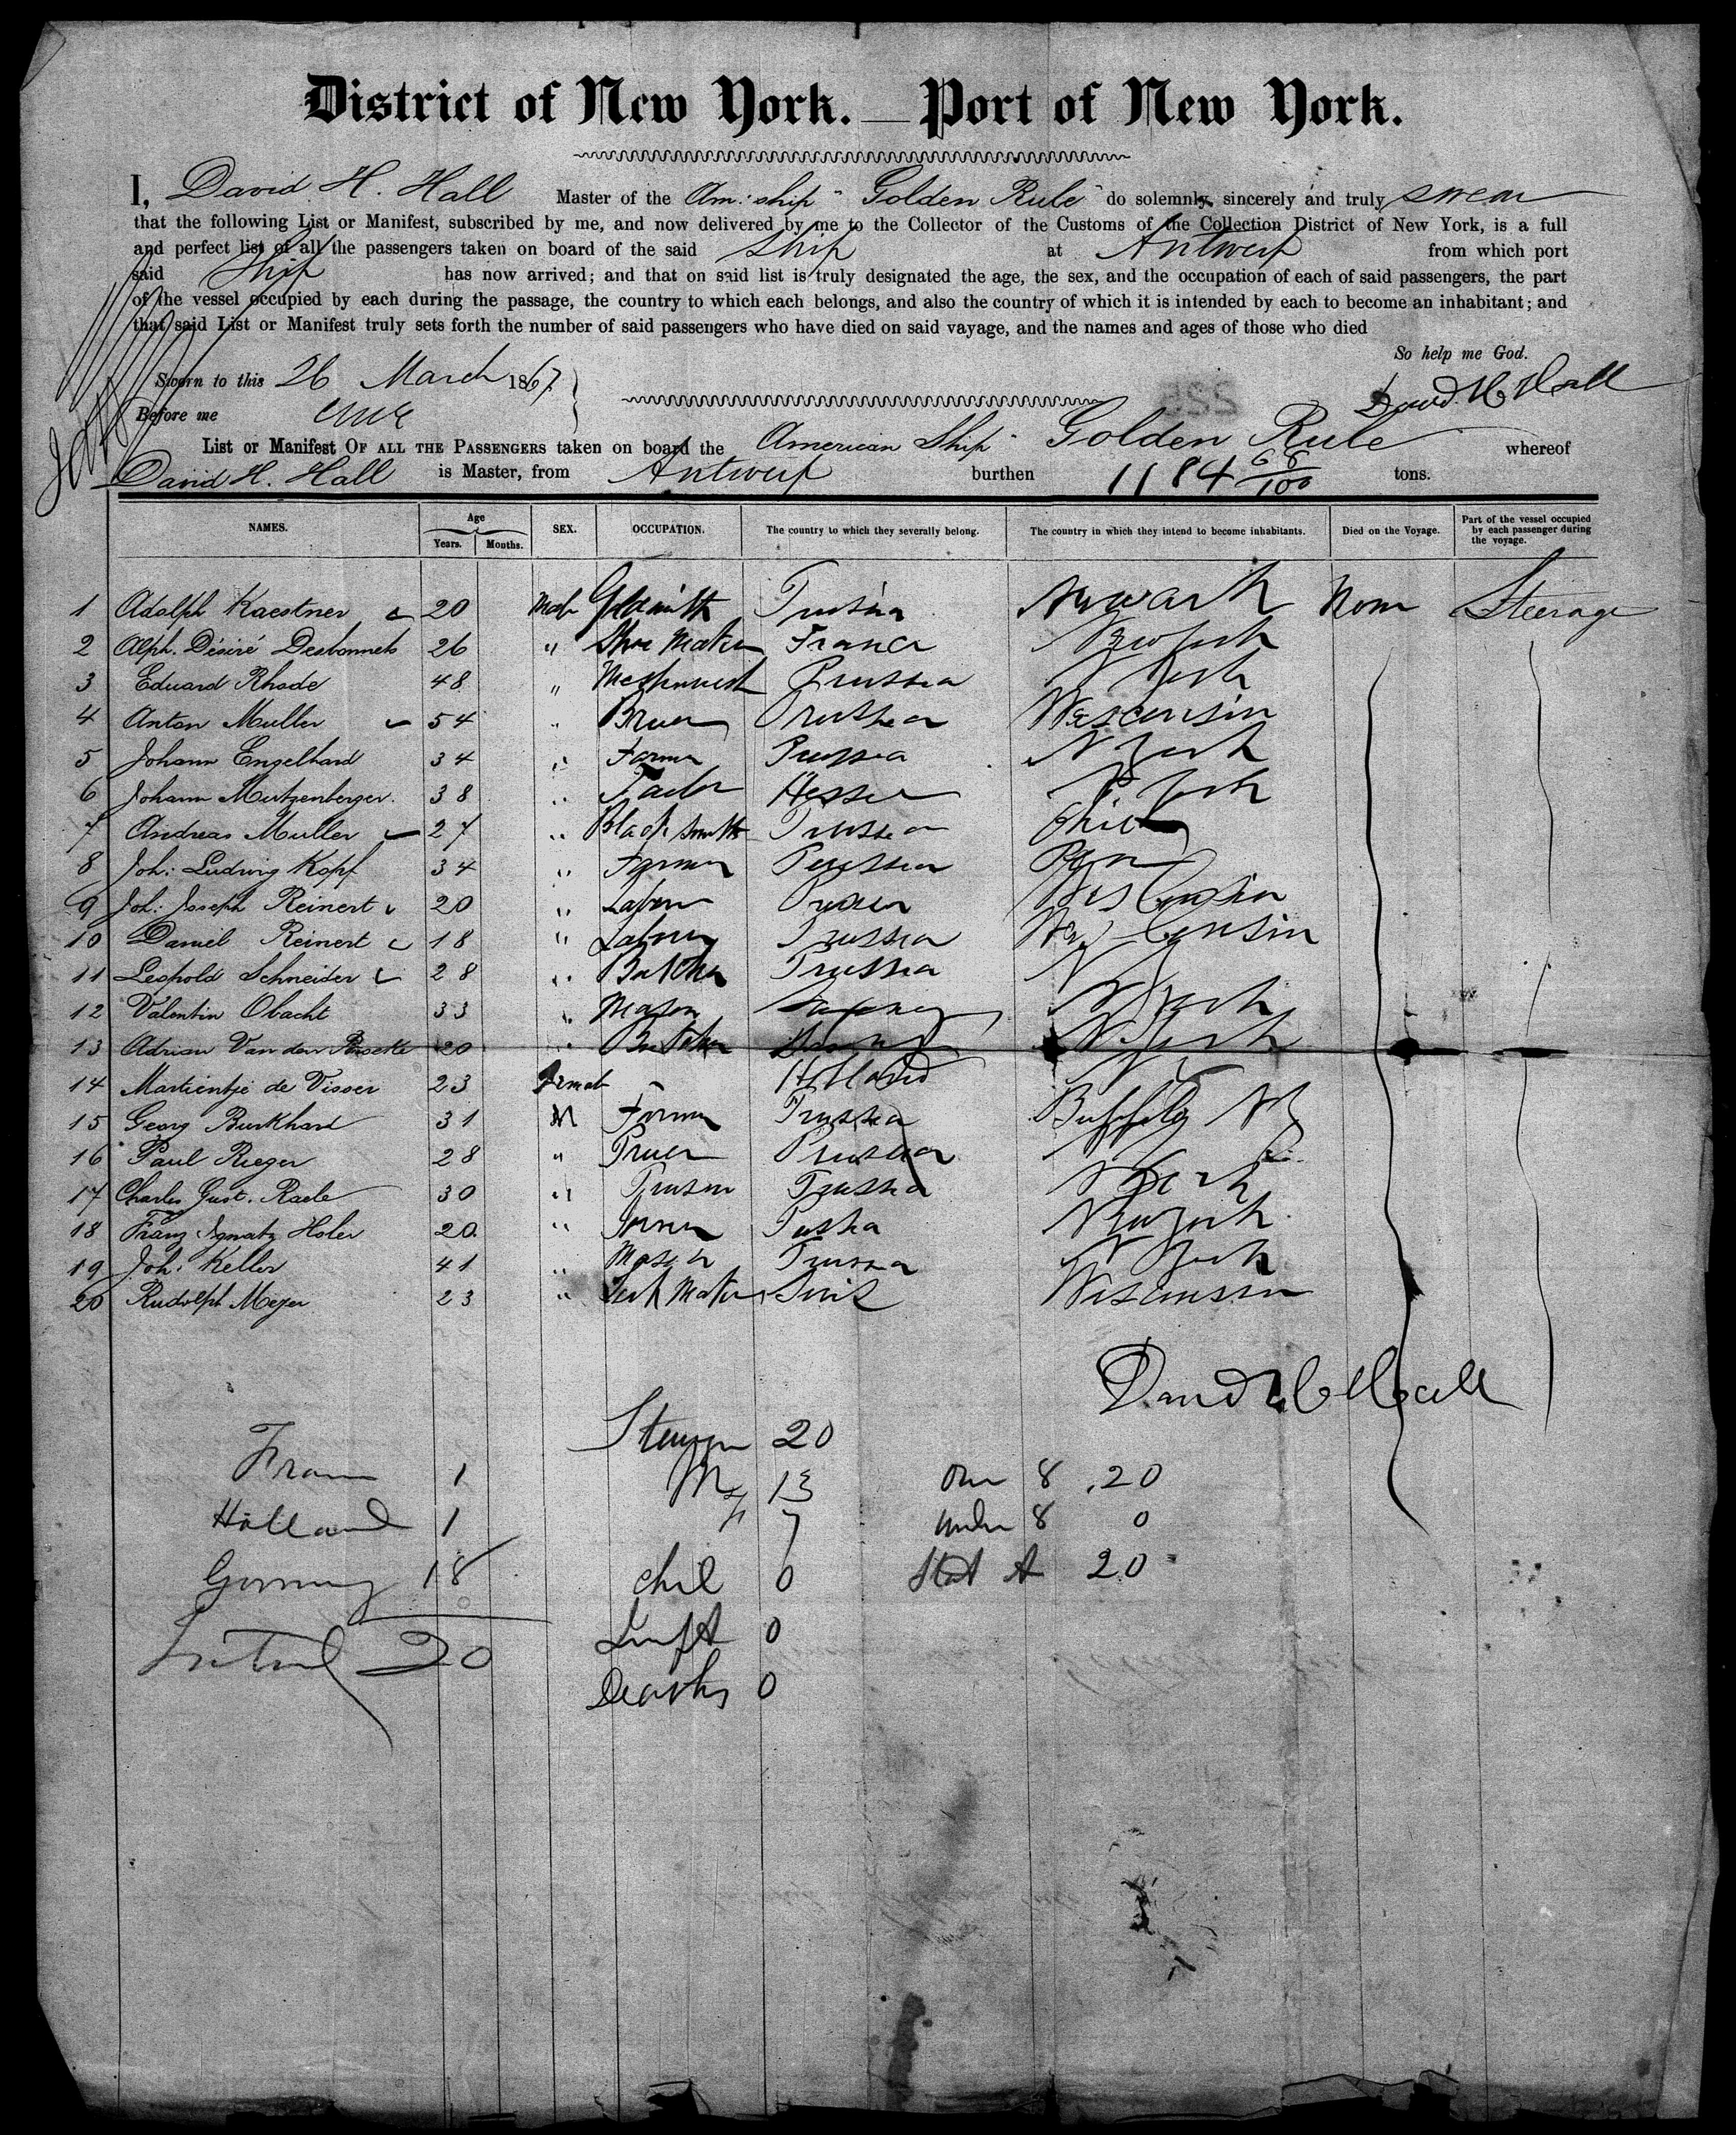 District of New York. — Port of New York.
I, David H. Hall Master of the Am: ship "Golden Rule" do solemnly, sincerely and truly swear
that the following List or Manifest, subscribed by me, and now delivered by me to the Collector of the Customs of the Collection District of New York, is a full
and perfect list of all the passengers taken on board of the said Ship at Antwerp from which port
said Ship has now arrived; and that on said list is truly designated the age, the sex, and the occupation of each of said passengers, the part
of the vessel occupied by each during the passage, the country to which each belongs, and also the country of which it is intended by each to become an inhabitant; and
that said List or Manifest truly sets forth the number of said passengers who have died on said vayage, and the names and ages of those who died
So help me God.
Sworn to this 26 March 1867
David H Hall
Before me
List or Manifest OF ALL THE PASSENGERS taken on board the American Ship Golden Rule whereof
David H. Hall is Master, from Antwerp burthen 1184 68/100 tons.
NAMES. Age Years. Months. SEX. OCCUPATION. The country to which they severally belong. The country in which they intend to become inhabitants. Died on the Voyage. Part of the vessel occupied by each passenger during the voyage.
1 Adolph Kaestner 20 Male Goldsmith Prussia Newark None Steerage
2 Alph. Désiré Desbonnets 26 " Shoe Maker France New York
3 Eduard Rhode 48 " Prussia N York
4 Anton Muller 54 " Bruer Prussia Wisconsin
5 Johann Engelhard 34 " Farmer Prussia N York
6 Johann Mutzenberger. 38 " Tailor Hessen N York
7 Andreas Muller 27 " Black smith Prussia
8 Joh: Ludwig Kopf 34 " Farmer Prussia
9 Joh: Joseph Reinert 20 " Labourer Prussia Wisconsin
10 Daniel Reinert 18 " Prussia Wisconsin
11 Leopold Schneider 28 " Butcher Prussia N Y
12 Valentin Obacht 33 " Mason N York
13 Adrian Van den 20 " Butcher N York
14 Martientje de Visser 23 Female Holland N Y
15 Georg Burkhard 31 M Farmer Prussia Buffalo N Y
16 Paul Rieger 28 " Bruer Prussia N Y
17 Charles Gust. Raele 30 " Prussia N York
18 Franz Ignatz Holer 20. " Prussia New York
19 Joh: Keller 41 " Mason Prussia N York
20 Rudolph Meyer 23 " Wisconsin
David H Hall
Steerage 20
France 1 M 13 over 8 20
Holland 1 F 7 under 8 0
Germany 18 chil 0 Stat A 20
Total 20 Inft 0
Deaths 0